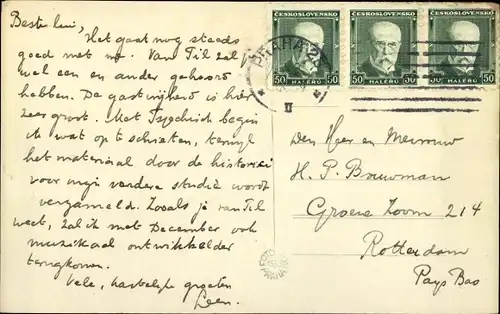 Beste lui,
Het gaat nog steeds
goed met me. Van Til zal
wel een en ander gehoord
hebben. De gastvrijheid is hier
zeer groot. Met Tsjechisch begin
ik wat op te schieten, terwijl
het materiaal door de historici
voor mijn verdere studie wordt
verzameld. Zooals je van Til
weet, zal ik met December ook
muzikaal ontwikkelder
terugkomen.
Vele, hartelijke groeten
Leen.
ČESKOSLOVENSKO
50 HALÉŘŮ 50
ČESKOSLOVENSKO
50 HALÉŘŮ 50
ČESKOSLOVENSKO
50 HALÉŘŮ 50
PRAHA 12
II
Den Heer en Mevrouw
H. P. Bouwman
Groene Zoom 214
Rotterdam
Pays Bas
FOTO
PRAHA